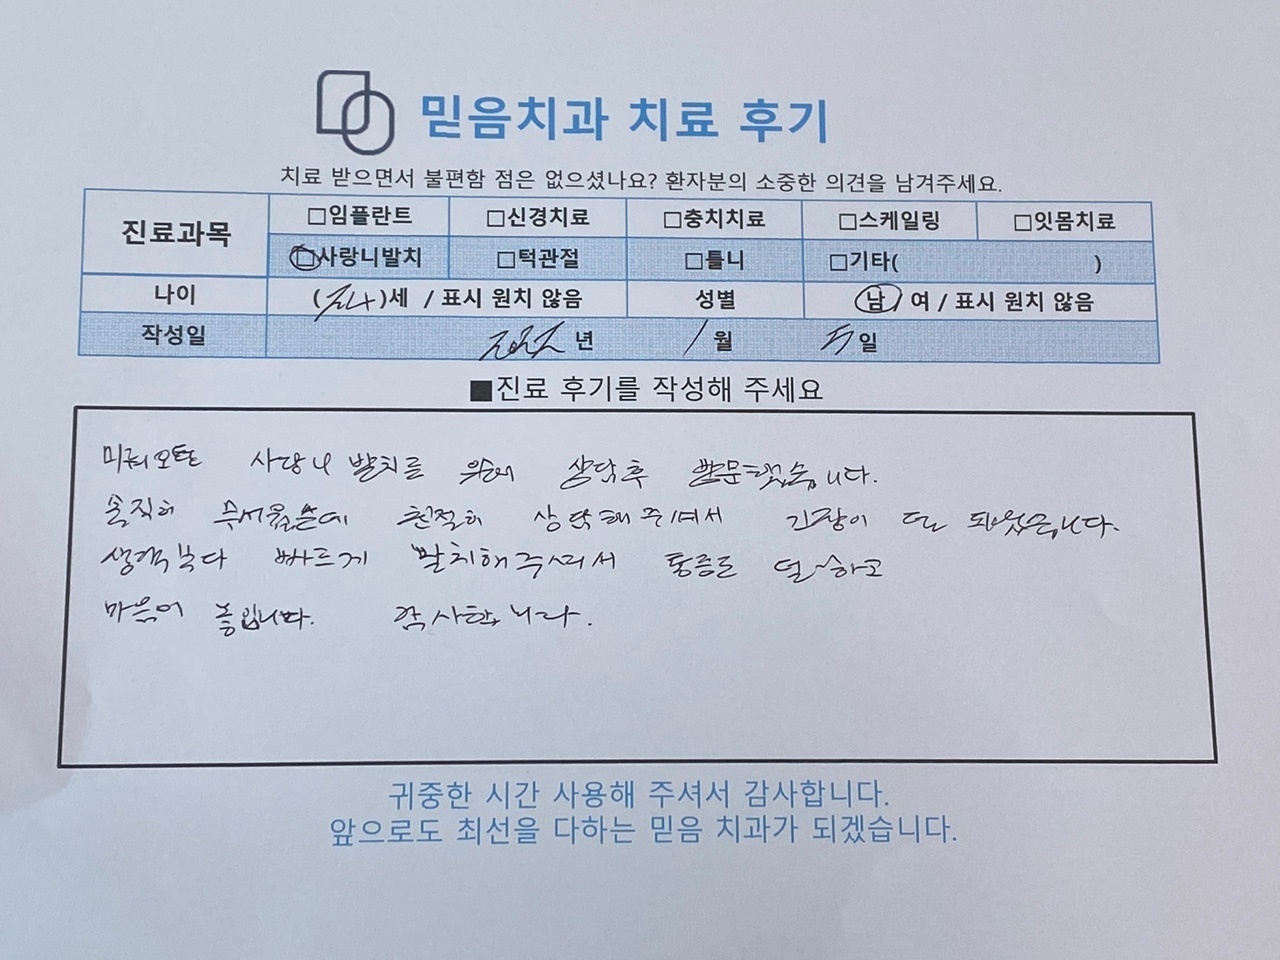 믿음치과 치료 후기
치료 받으면서 불편함 점은 없으셨나요? 환자분의 소중한 의견을 남겨주세요.
진료과목 □임플란트 □신경치료 □충치치료 □스케일링 □잇몸치료
□사랑니발치 □턱관절 □틀니 □기타( )
나이 (24)세 / 표시 원치 않음 성별 남 / 여 / 표시 원치 않음
작성일 2022년 1월 5일
■진료 후기를 작성해 주세요
미뤄오던 사랑니 발치를 위해 상담후 방문했습니다.
솔직히 무서웠는데 친절히 상담해주셔서 긴장이 덜 되었습니다.
생각보다 빠르게 발치해주셔서 통증도 덜하고
마음이 놓입니다. 감사합니다.
귀중한 시간 사용해 주셔서 감사합니다.
앞으로도 최선을 다하는 믿음 치과가 되겠습니다.